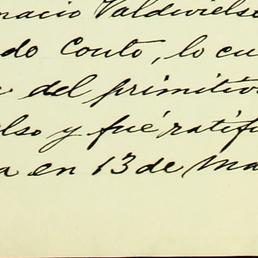 nacio Valdivielso
do Couto, lo cu
del primitivo
elso y fué ratifi
a en 13 de Ma